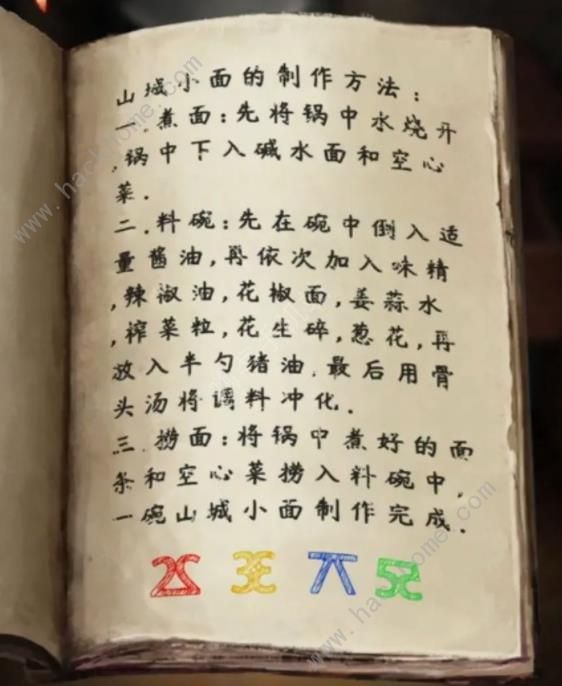 山城小面的制作方法：
一.煮面：先将锅中水烧开
,锅中下入碱水面和空心
菜.
二.料碗：先在碗中倒入适
量酱油,再依次加入味精
,辣椒油,花椒面,姜蒜水
,榨菜粒,花生碎,葱花,再
放入半勺猪油.最后用骨
头汤将调料冲化.
三.捞面：将锅中煮好的面
条和空心菜捞入料碗中,
一碗山城小面制作完成.
www.hackhome.com
www.hackhome.com